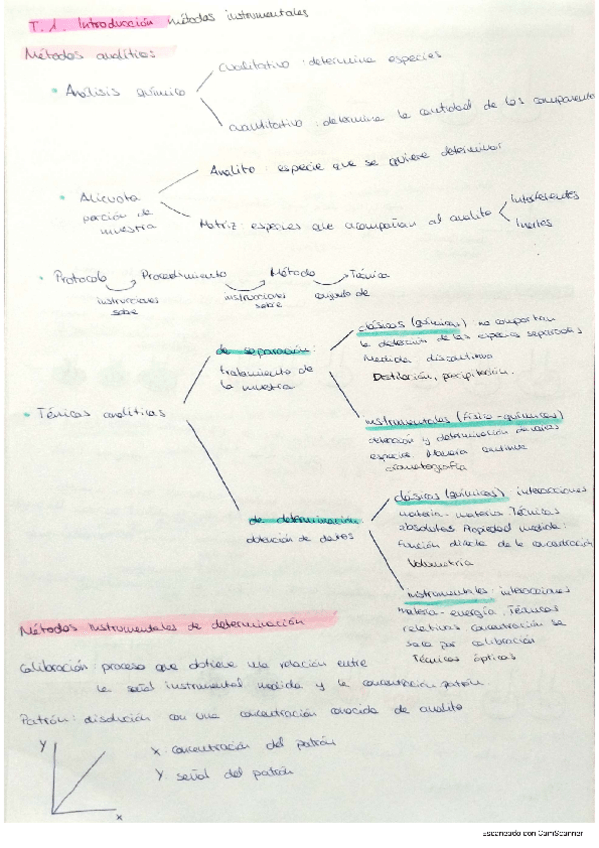 T.1. Introducción métodos instrumentales
Métodos analíticos:
• Análisis químico
cualitativo: determina especies
cuantitativo: determina la cantidad de los componentes
• Alícuota
porción de
muestra
Analito: especie que se quiere determinar
Matriz: especies que acompañan al analito
Interferentes
Inertes
• Protocolo
Procedimiento
Método
Técnica
instrucciones
sobre
instrucciones
sobre
conjunto de
• Técnicas analíticas
de separación:
tratamiento de
la muestra
clásicas (químicas) no comportan
la detección de las especies separadas
Medida discontinua
Destilación, precipitación.
instrumentales (físico-químicas)
detección y determinación de varias
especies. Manera continua
cromatografía
de determinación
obtención de datos
clásicas (químicas) interacciones
materia-materia. Técnicas
absolutas Propiedad medida:
función directa de la concentración
Volumetría
instrumentales: interacciones
materia-energía. Técnicas
relativas concentración se
saca por calibración
Técnicas ópticas
Métodos instrumentales de determinación
Calibración: proceso que obtiene una relación entre
la señal instrumental medida y la concentración patrón.
Patrón: disolución con una concentración conocida de analito
Y
x
x concentración del patrón
Y señal del patrón
Escaneado con CamScanner